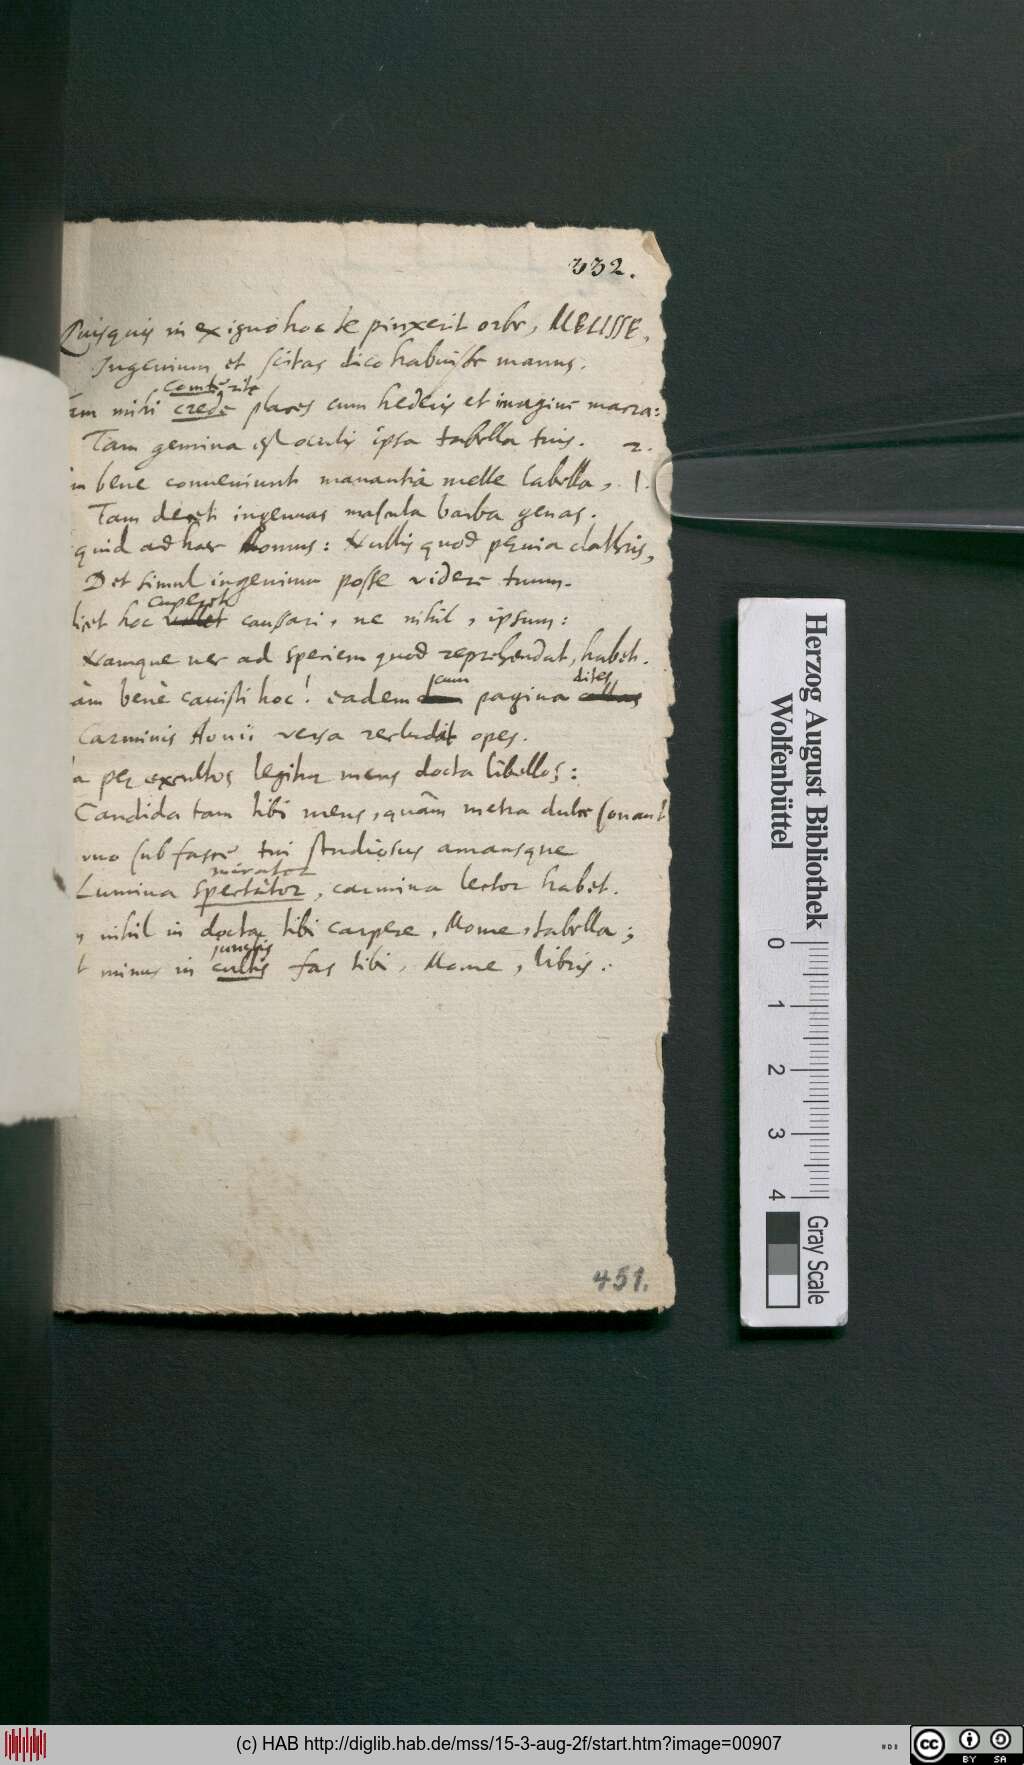 332.
Quisquis in exiguo hoc te pinxerit orbe, MELISSE,
Ingenium et scitas dico habuisse manus.
comtè ritè
am mihi crede places cum hederis et imagine macra:
Tam gemina est oculis ipsa tabella tuis. 2.
m bene conveniunt manantia melle labella, 1.
Tam decet ingenuas mascula barba genas.
quid ad haec Momus: Nullis quod pervia clathris,
Det simul ingenium posse videre tuum.
cuperet
liet hoc vellet caussari, ne nihil, ipsum:
Namque nec ad speciem quod reprehendat, habet.
cum dites
âm benè cavisti hoc! eadem pagina
Carminis Aonii versa recludit opes.
a per excultos legitur mens docta libellos:
Candida tam tibi mens, quâm metra dulce sonant
sub tui studiosus amansque
mirator
Lumina spectator, carmina lector habet.
nihil in docta tibi carpere, Mome, tabella;
junctis
t minus in cultis fas tibi, Mome, libris.
451.
Herzog August Bibliothek
Wolfenbüttel
0 1 2 3 4
Gray Scale
(c) HAB http://diglib.hab.de/mss/15-3-aug-2f/start.htm?image=00907
cc BY SA